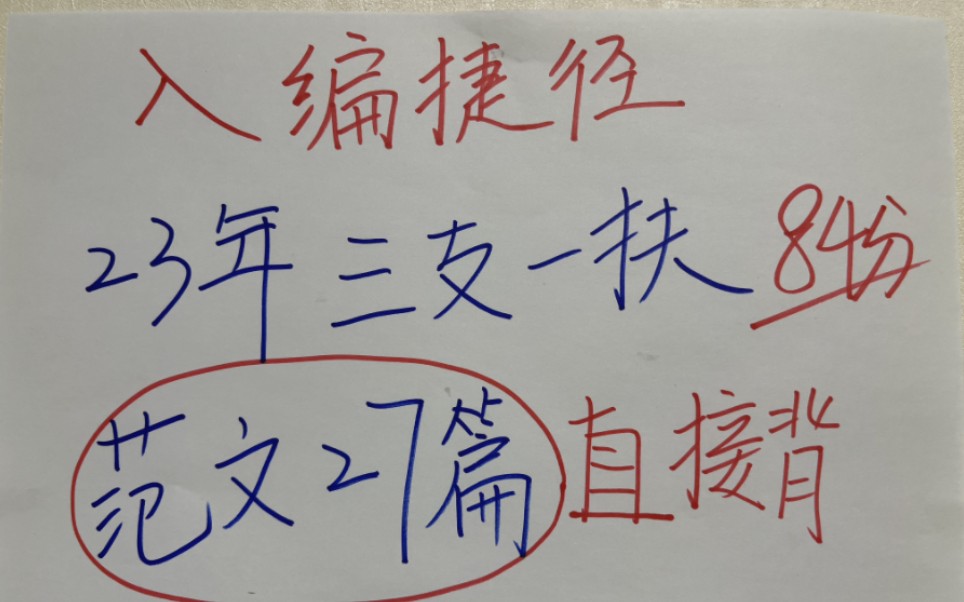 入编捷径
23年三支一扶 84份
范文27篇 直接背